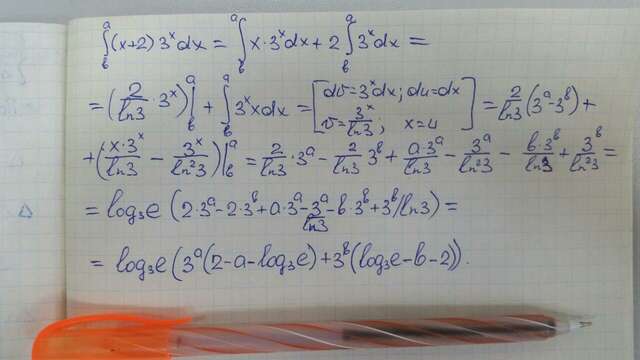 ∫_b^a (x+2) 3^x dx = ∫_b^a x·3^x dx + 2 ∫_b^a 3^x dx =
= (2/ln3 · 3^x)|_b^a + ∫_b^a 3^x x dx = [dv=3^x dx; du=dx v=3^x/ln3; x=u] = 2/ln3 (3^a-3^b) +
+ (x·3^x/ln3 - 3^x/ln²3)|_b^a = 2/ln3 · 3^a - 2/ln3 3^b + a·3^a/ln3 - 3^a/ln²3 - b·3^b/ln3 + 3^b/ln²3 =
= log₃e (2·3^a - 2·3^b + a·3^a - 3^a/ln3 - b·3^b + 3^b/ln3) =
= log₃e (3^a (2-a-log₃e) + 3^b (log₃e-b-2)).